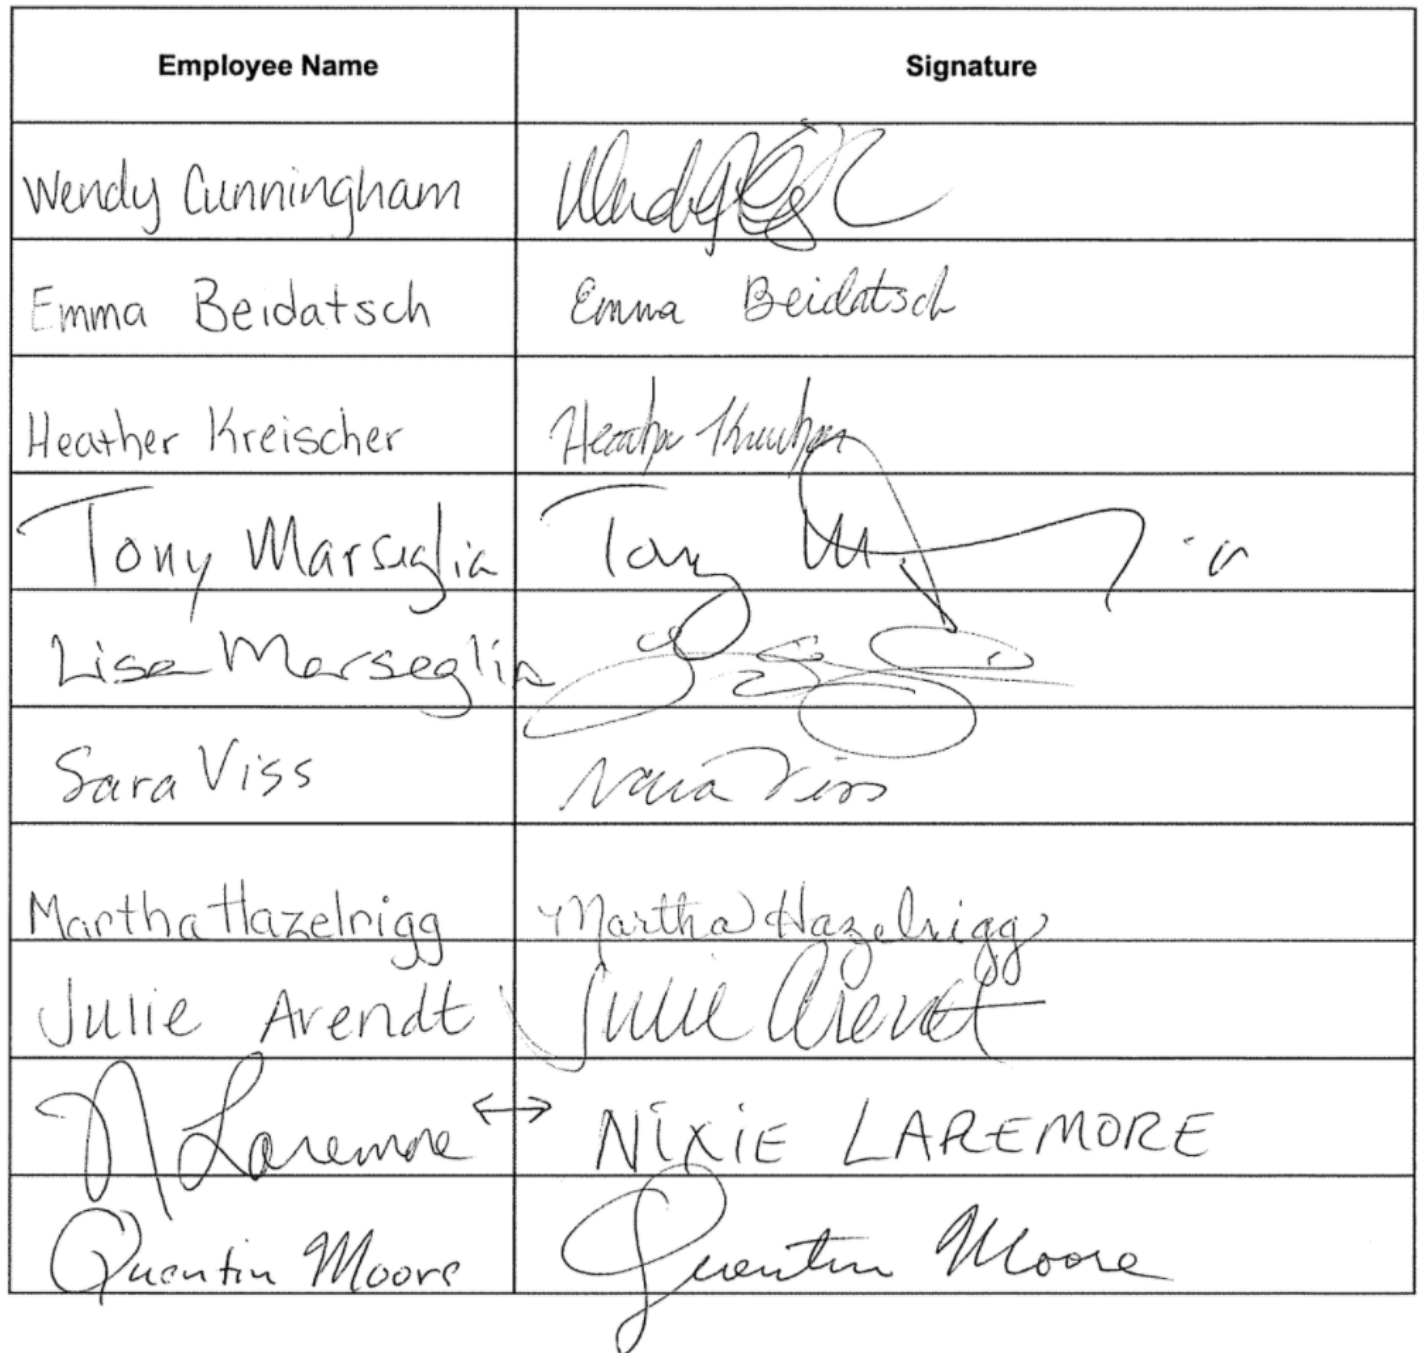 Employee Name Signature
Wendy Cunningham
Emma Beidatsch Emma Beidatsch
Heather Kreischer Heather
Tony Marseglia Tony
Lisa Marseglia
Sara Viss Sara Viss
Martha Hazelrigg Martha Hazelrigg
Julie Arendt Julie Arendt
N Laremore ↔ NIXIE LAREMORE
Quentin Moore Quentin Moore